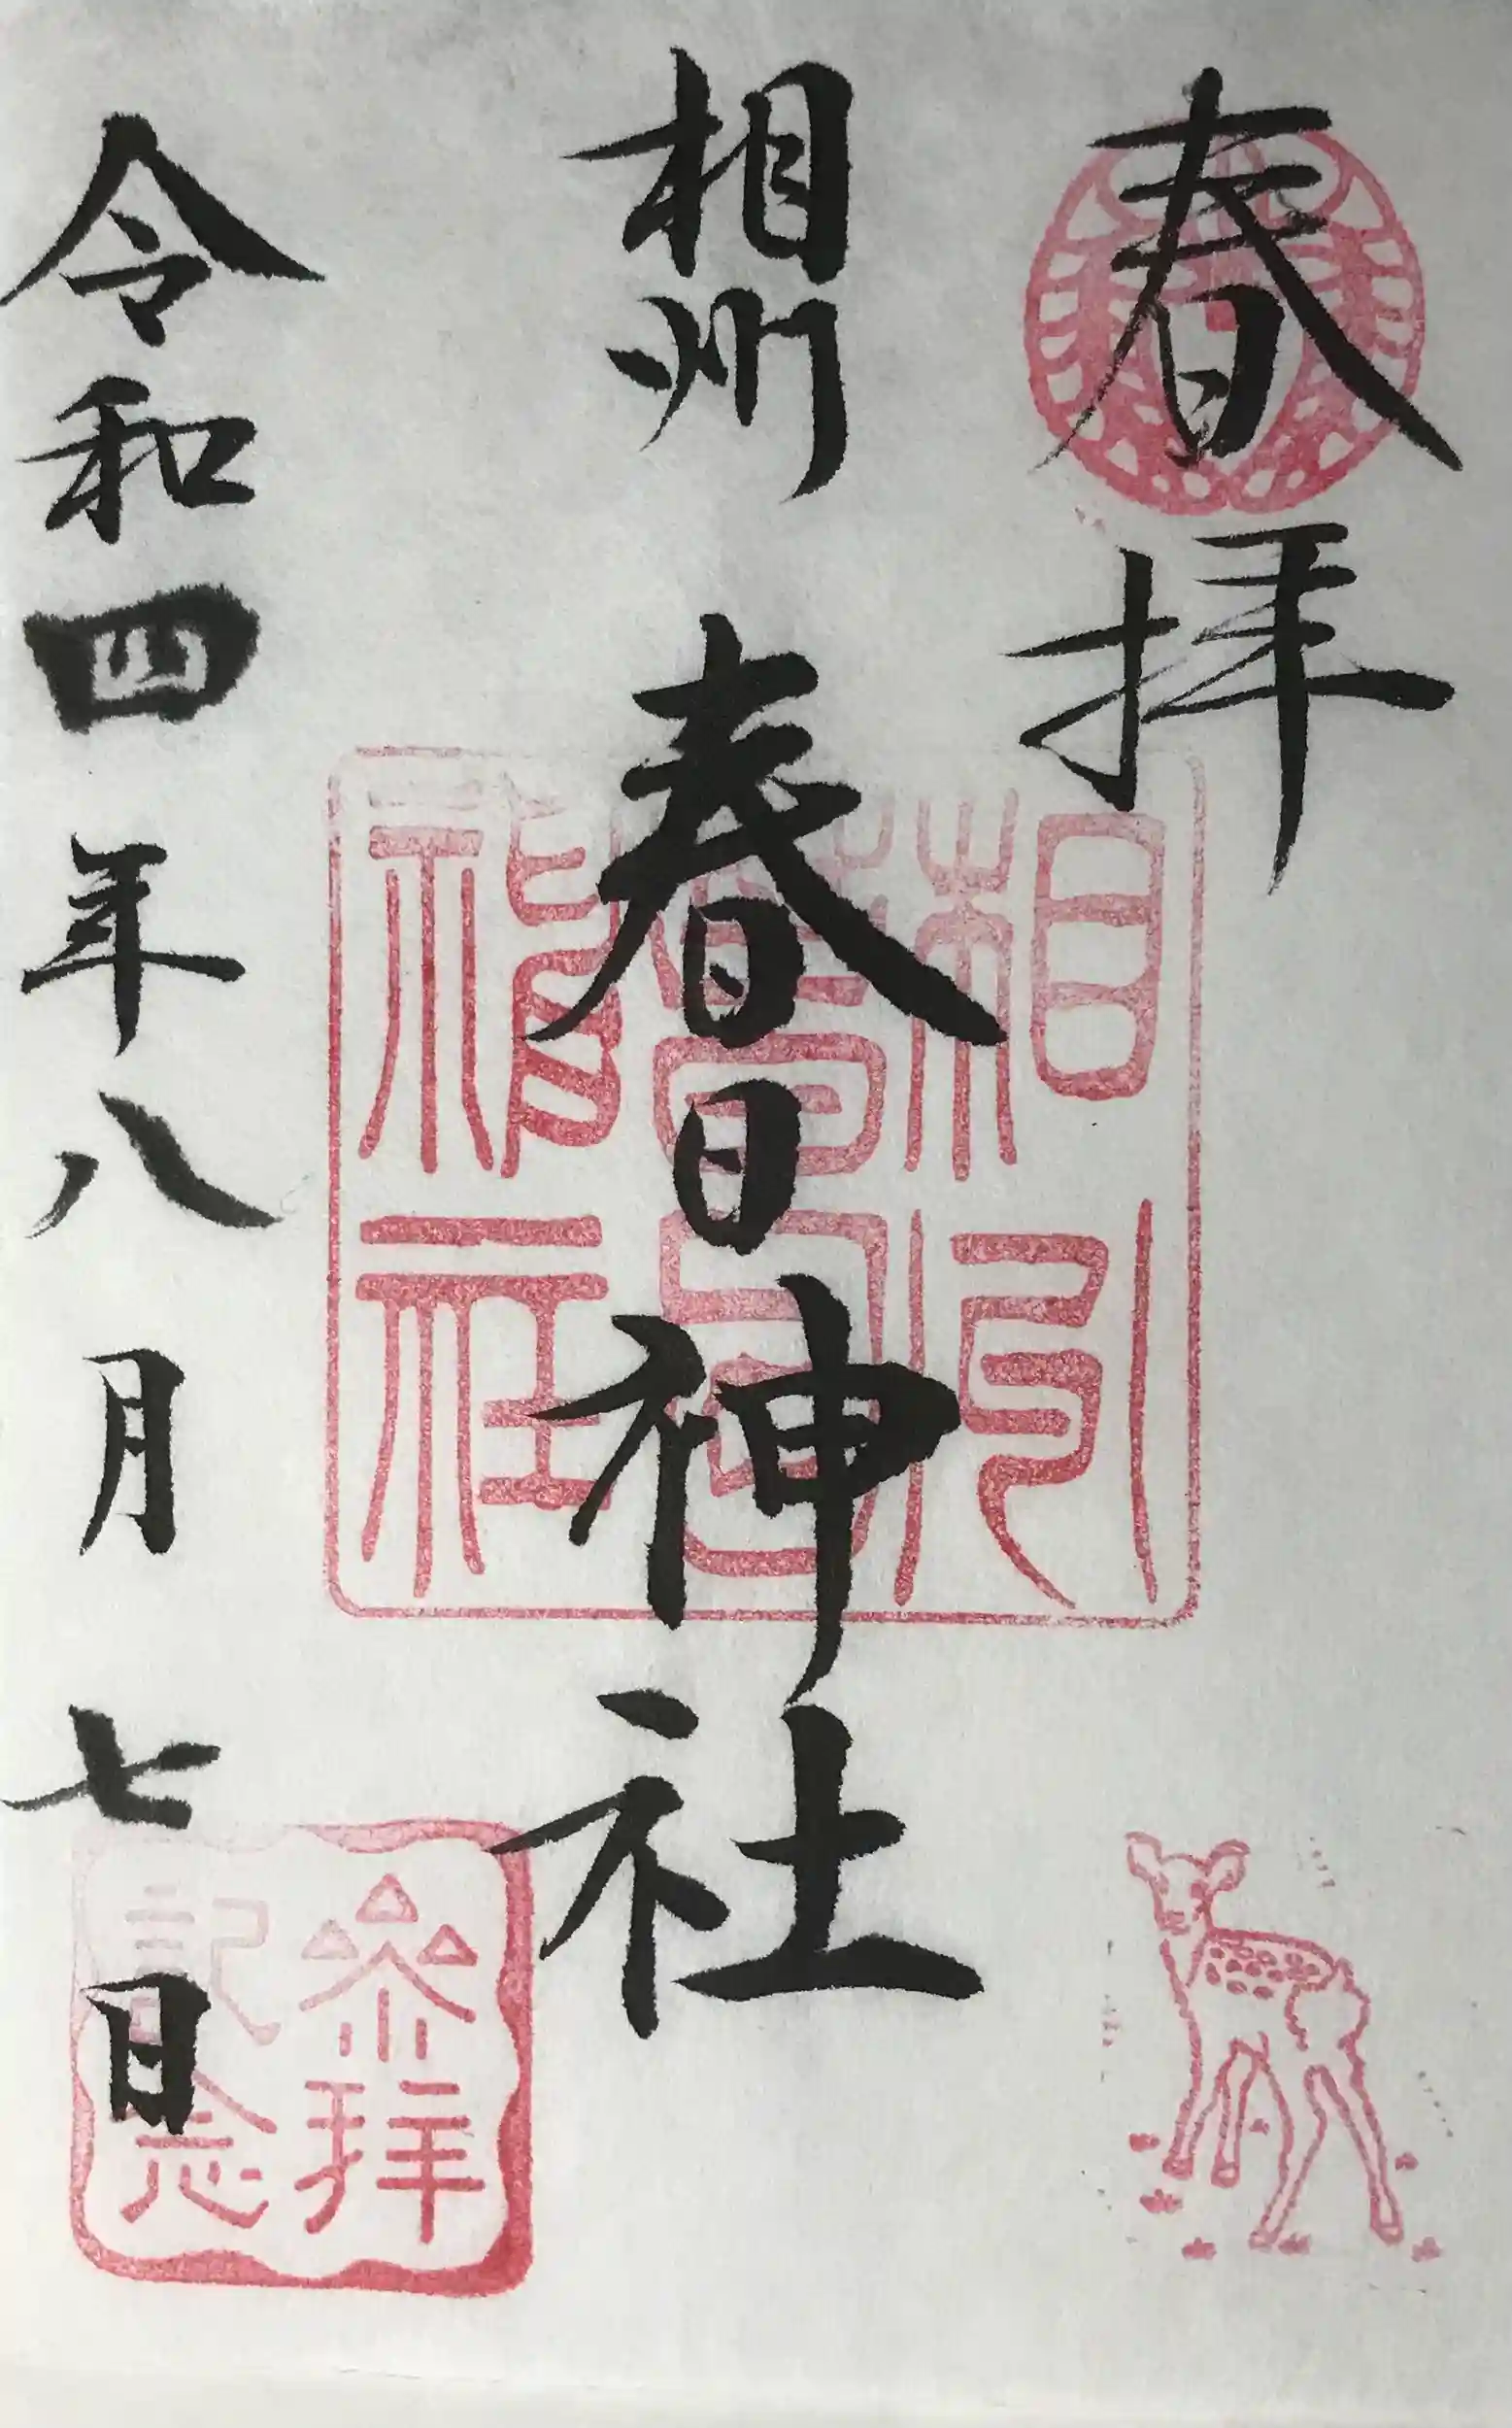 春拝
相州 春日神社
令和四年八月七日
相州
春日
神社
參拝
記念